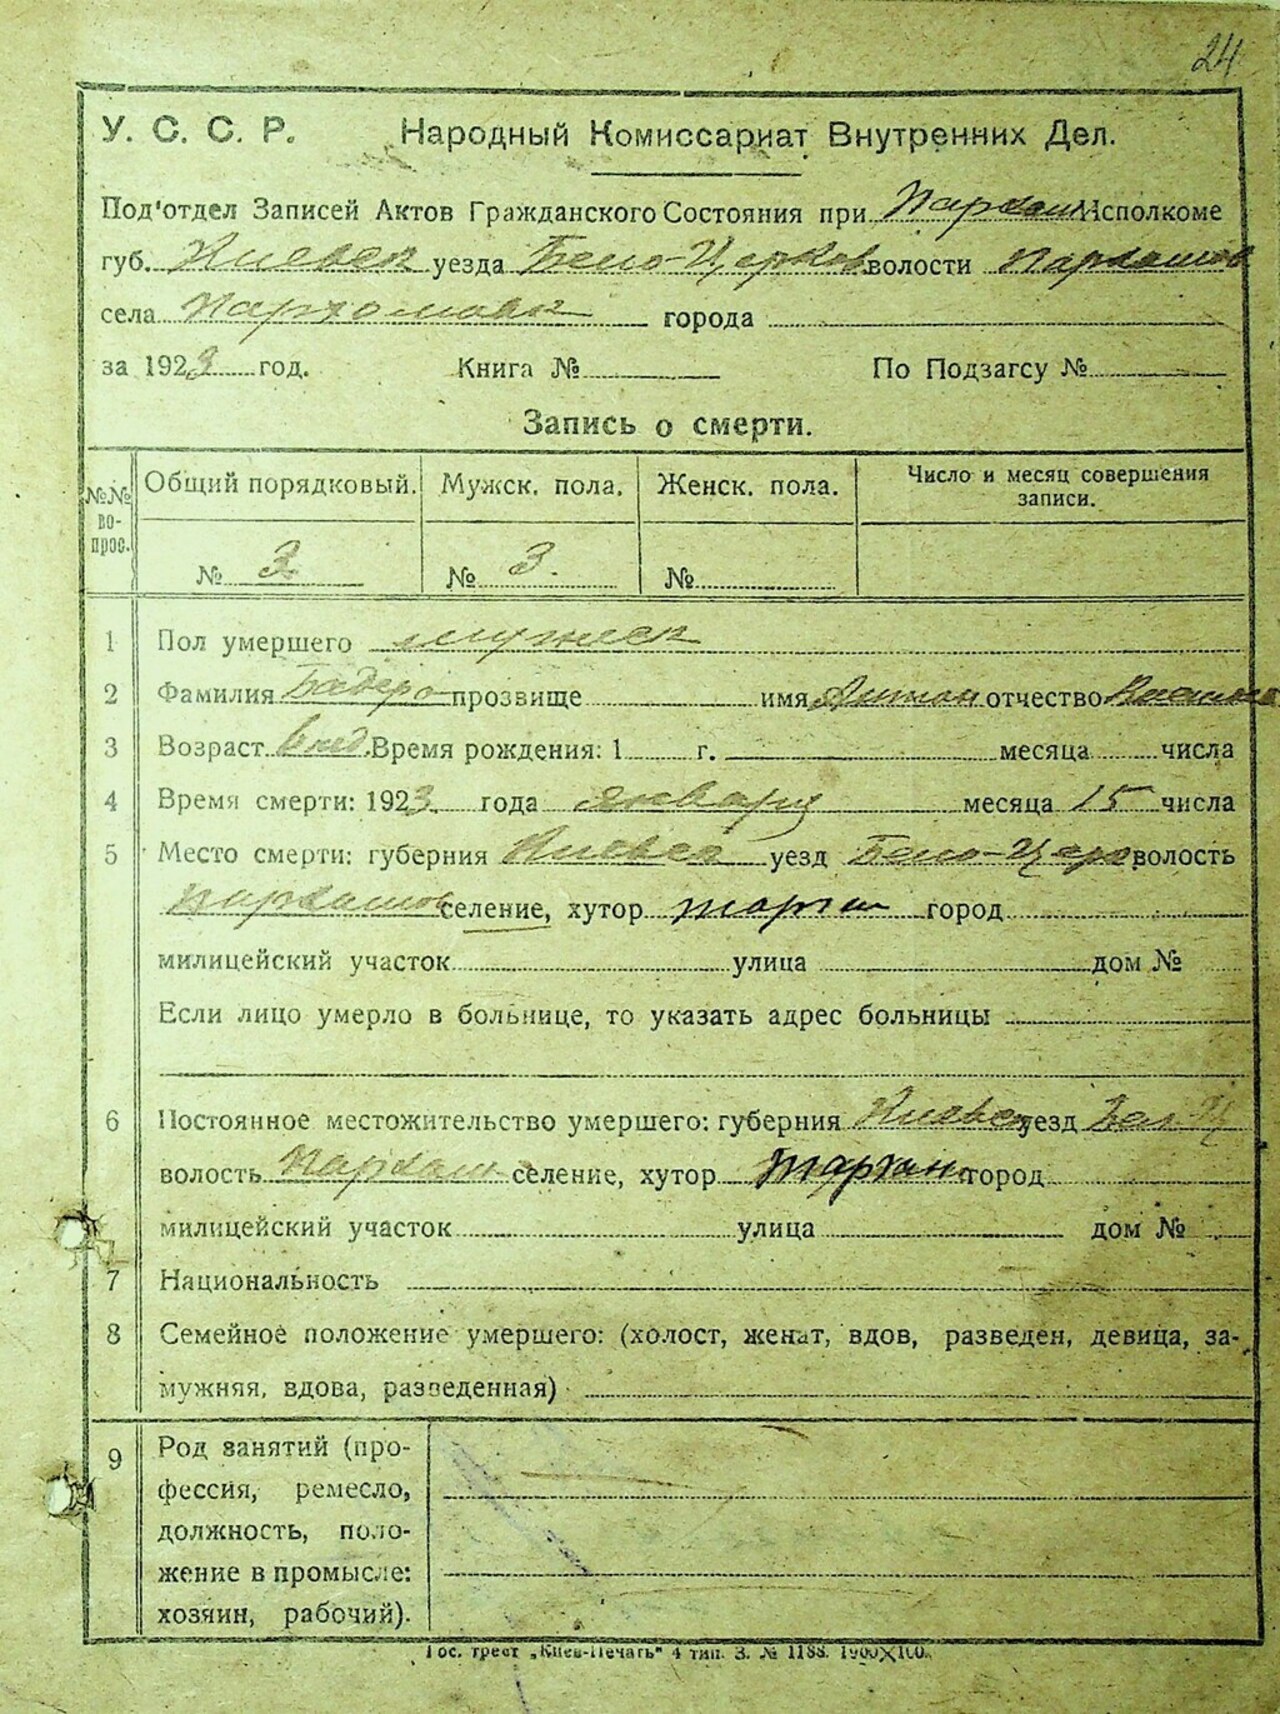 24
У. С. С. Р. Народный Комиссариат Внутренних Дел.
Под'отдел Записей Актов Гражданского Состояния при Пархом Исполкоме
губ. Киевск уезда Бело-Церков волости Пархомов
села Пархомовк города
за 1923 год. Книга № По Подзагсу №
Запись о смерти.
№№ во-прос. Общий порядковый. Мужск. пола. Женск. пола. Число и месяц совершения записи.
№ 3 № 3. №
1 Пол умершего мужеск
2 Фамилия прозвище имя Антон отчество
3 Возраст 6 нед. Время рождения: 1 г. месяца числа
4 Время смерти: 1923 года января месяца 15 числа
5 Место смерти: губерния Киевск уезд Бело-Церк волость
Пархомов селение, хутор город
милицейский участок улица дом №
Если лицо умерло в больнице, то указать адрес больницы
6 Постоянное местожительство умершего: губерния Киевск уезд Бел. Ц
волость Пархом селение, хутор город
милицейский участок улица дом №
7 Национальность
8 Семейное положение умершего: (холост, женат, вдов, разведен, девица, за-
мужняя, вдова, разведенная)
9 Род занятий (про-
фессия, ремесло,
должность, поло-
жение в промысле:
хозяин, рабочий).
Гос. трест „Киев-Печать" 4 тип. З. № 1188. 1900×100.